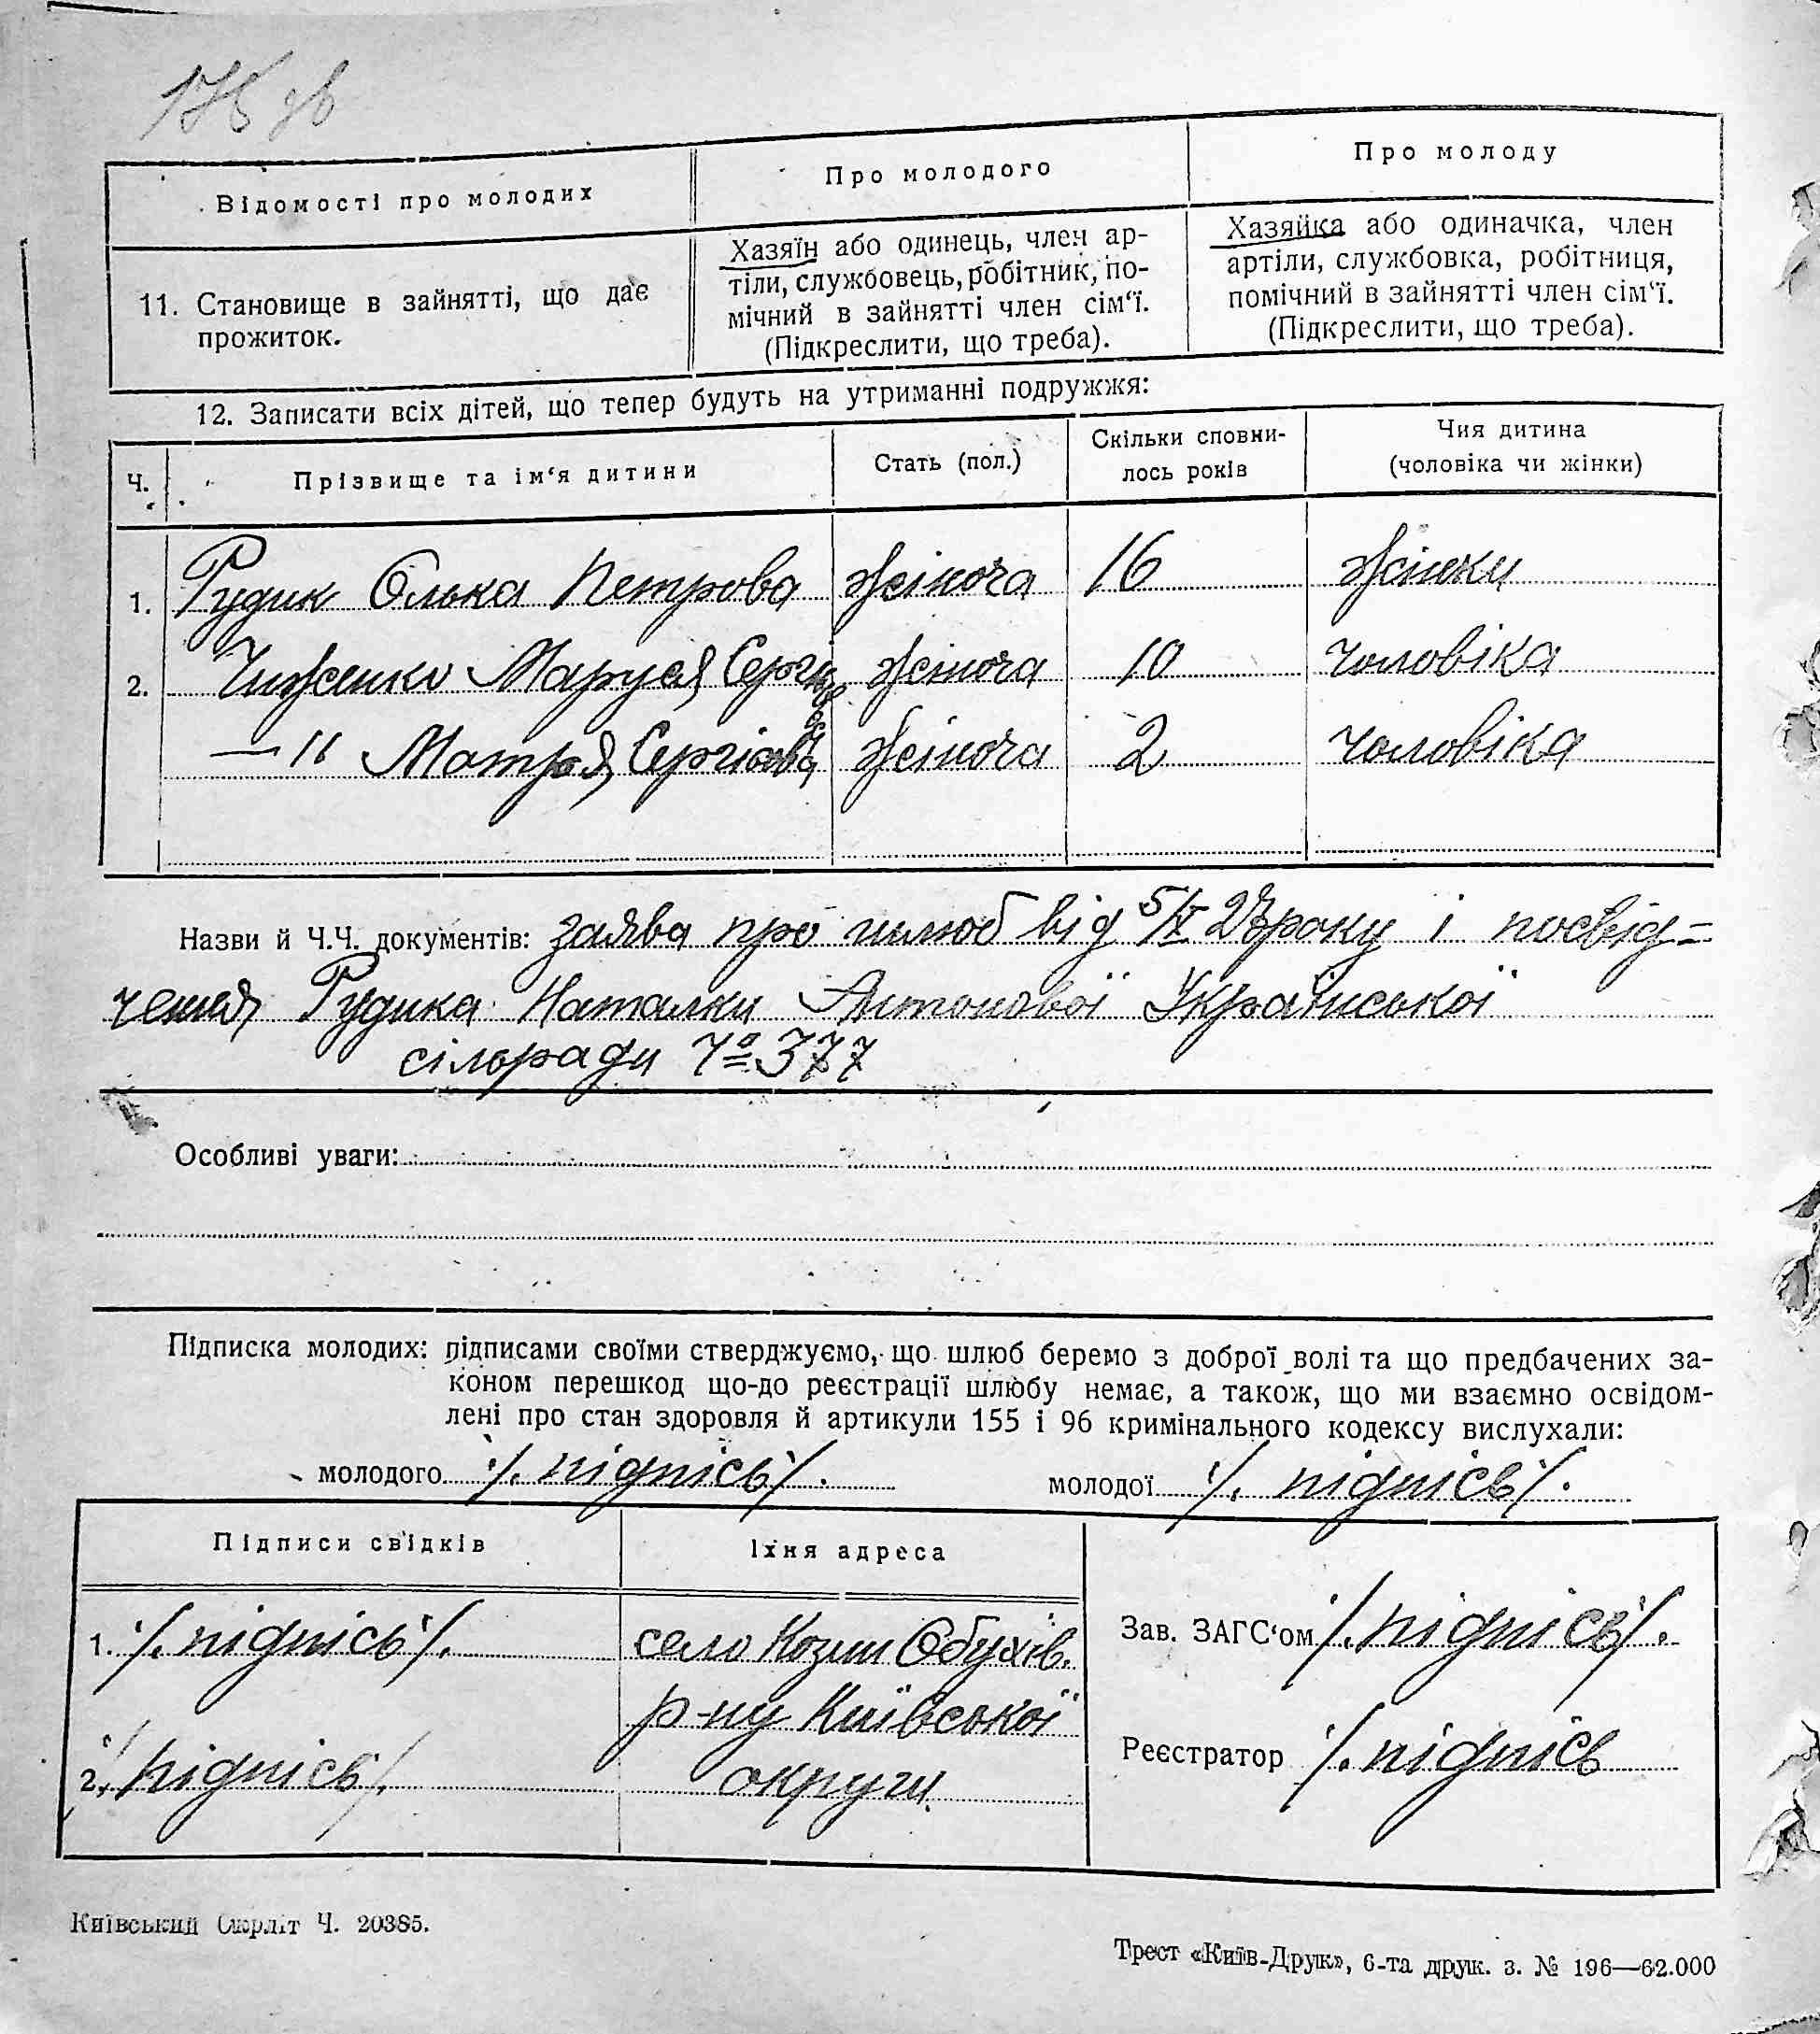 Відомості про молодих
Про молодого
Про молоду
11. Становище в зайнятті, що дає
прожиток.
Хазяїн або одинець, член ар-
тіли, службовець, робітник, по-
мічний в зайнятті член сім‘ї.
(Підкреслити, що треба).
Хазяйка або одиначка, член
артіли, службовка, робітниця,
помічний в зайнятті член сім‘ї.
(Підкреслити, що треба).
12. Записати всіх дітей, що тепер будуть на утриманні подружжя:
Ч. Прізвище та ім‘я дитини
Стать (пол.)
Скільки сповни-
лось років
Чия дитина
(чоловіка чи жінки)
1. Рудик Олька Петрова жіноча 16 жінки
2. Чиженко Маруся жіноча 10 чоловіка
— 11 Мотря Сергієва жіноча 2 чоловіка
Назви й Ч.Ч. документів: заява про шлюб від 5/V року і посвід-
чення Рудика Наталки Антонової Української
сільради Чо 377
Особливі уваги:
Підписка молодих: підписами своїми стверджуємо, що шлюб беремо з доброї волі та що предбачених за-
коном перешкод що-до реєстрації шлюбу немає, а також, що ми взаємно освідом-
лені про стан здоровля й артикули 155 і 96 кримінального кодексу вислухали:
молодого /. підпісь /. молодої /. підпісь /.
Підписи свідків
Їхня адреса
1. /. підпісь /. село Козин Обухів.
р-ну Київської
2. / підпісь /. округи.
Зав. ЗАГС‘ом /. підпісь /.
Реєстратор /. підпісь
Київський Окрліт Ч. 20385.
Трест «Київ-Друк», 6-та друк. з. № 196—62.000